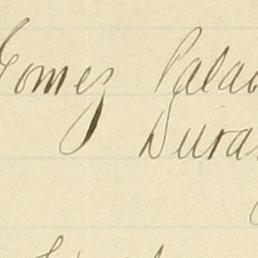 Gomez Pala
Dura